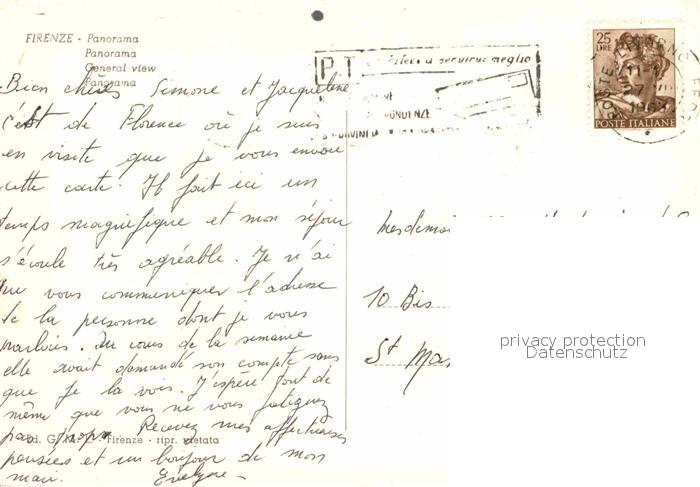 FIRENZE - Panorama
Panorama
General view
Panorama
Bien chères Simone et Jacqueline
c'est de Florence où je suis
en visite que je vous envoie
cette carte. Il fait ici un
temps magnifique et mon séjour
s'écoule très agréable. Je n'ai
pu vous communiquer l'adresse
de la personne dont je vous
parlais. Au cours de la semaine
elle avait demandé son compte sans
que je la vois. J'espère tout de
même que vous ne vous fatiguez
pas trop. Recevez mes affectueuses
pensées et un bonjour de mon
mari. Evelyne
Ed. G. M. - Firenze - ripr. vietata
PT a servirvi meglio
25
LIRE
POSTE ITALIANE
Mesdemoi
10 Bis
St Ma
privacy protection
Datenschutz